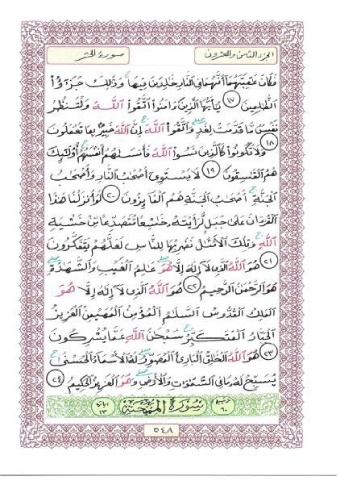 الجزء الثامن والعشرون سورة الحشر
فَكَانَ عَٰقِبَتَهُمَآ أَنَّهُمَا فِى ٱلنَّارِ خَٰلِدَيْنِ فِيهَا ۚ وَذَٰلِكَ جَزَٰٓؤُا۟
ٱلظَّٰلِمِينَ ١٧ يَٰٓأَيُّهَا ٱلَّذِينَ ءَامَنُوا۟ ٱتَّقُوا۟ ٱللَّهَ وَلْتَنظُرْ
نَفْسٌ مَّا قَدَّمَتْ لِغَدٍ ۖ وَٱتَّقُوا۟ ٱللَّهَ ۚ إِنَّ ٱللَّهَ خَبِيرٌۢ بِمَا تَعْمَلُونَ
١٨ وَلَا تَكُونُوا۟ كَٱلَّذِينَ نَسُوا۟ ٱللَّهَ فَأَنسَىٰهُمْ أَنفُسَهُمْ ۚ أُو۟لَٰٓئِكَ
هُمُ ٱلْفَٰسِقُونَ ١٩ لَا يَسْتَوِىٓ أَصْحَٰبُ ٱلنَّارِ وَأَصْحَٰبُ
ٱلْجَنَّةِ ۚ أَصْحَٰبُ ٱلْجَنَّةِ هُمُ ٱلْفَآئِزُونَ ٢٠ لَوْ أَنزَلْنَا هَٰذَا
ٱلْقُرْءَانَ عَلَىٰ جَبَلٍ لَّرَأَيْتَهُۥ خَٰشِعًا مُّتَصَدِّعًا مِّنْ خَشْيَةِ
ٱللَّهِ ۚ وَتِلْكَ ٱلْأَمْثَٰلُ نَضْرِبُهَا لِلنَّاسِ لَعَلَّهُمْ يَتَفَكَّرُونَ
٢١ هُوَ ٱللَّهُ ٱلَّذِى لَآ إِلَٰهَ إِلَّا هُوَ ۖ عَٰلِمُ ٱلْغَيْبِ وَٱلشَّهَٰدَةِ ۖ
هُوَ ٱلرَّحْمَٰنُ ٱلرَّحِيمُ ٢٢ هُوَ ٱللَّهُ ٱلَّذِى لَآ إِلَٰهَ إِلَّا هُوَ
ٱلْمَلِكُ ٱلْقُدُّوسُ ٱلسَّلَٰمُ ٱلْمُؤْمِنُ ٱلْمُهَيْمِنُ ٱلْعَزِيزُ
ٱلْجَبَّارُ ٱلْمُتَكَبِّرُ ۚ سُبْحَٰنَ ٱللَّهِ عَمَّا يُشْرِكُونَ
٢٣ هُوَ ٱللَّهُ ٱلْخَٰلِقُ ٱلْبَارِئُ ٱلْمُصَوِّرُ ۖ لَهُ ٱلْأَسْمَآءُ ٱلْحُسْنَىٰ ۚ
يُسَبِّحُ لَهُۥ مَا فِى ٱلسَّمَٰوَٰتِ وَٱلْأَرْضِ ۖ وَهُوَ ٱلْعَزِيزُ ٱلْحَكِيمُ ٢٤
٦٠ سورة الممتحنة ١٣
٥٤٨